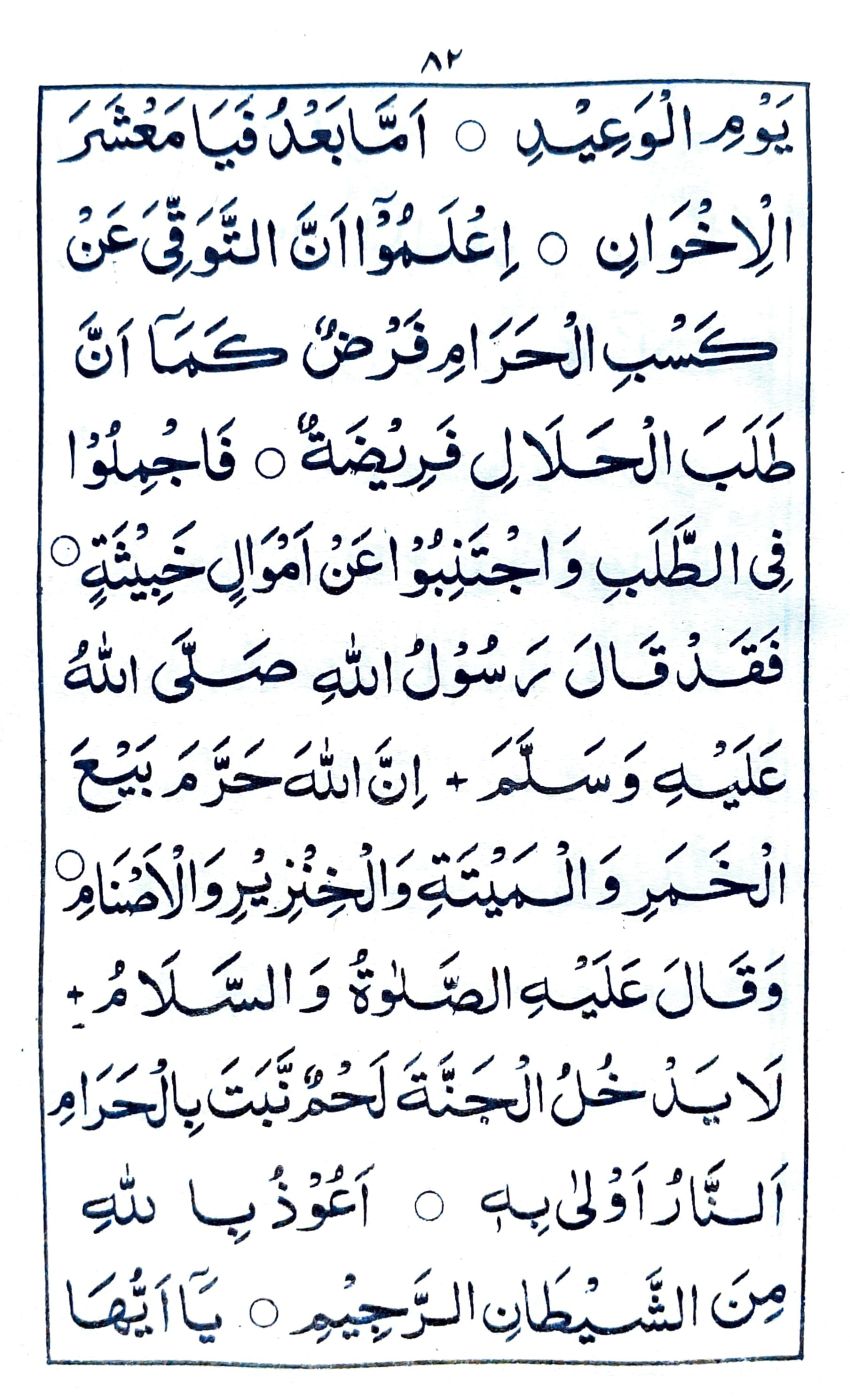 ٨٢
يَوْمِ الْوَعِيْدِ ○ اَمَّا بَعْدُ فَيَا مَعْشَرَ
الْاِخْوَانِ ○ اِعْلَمُوْٓا اَنَّ التَّوَقِّىَ عَنْ
كَسْبِ الْحَرَامِ فَرْضٌ كَمَآ اَنَّ
طَلَبَ الْحَلَالِ فَرِيْضَةٌ ○ فَاجْمِلُوْا
فِى الطَّلَبِ وَاجْتَنِبُوْا عَنْ اَمْوَالٍ خَبِيْثَةٍ ○
فَقَدْ قَالَ رَسُوْلُ اللهِ صَلَّى اللهُ
عَلَيْهِ وَسَلَّمَ + اِنَّ اللهَ حَرَّمَ بَيْعَ
الْخَمَرِ وَالْمَيْتَةِ وَالْخِنْزِيْرِ وَالْاَصْنَامِ ○
وَقَالَ عَلَيْهِ الصَّلٰوةُ وَالسَّلَامُ +
لَا يَدْخُلُ الْجَنَّةَ لَحْمٌ نَّبَتَ بِالْحَرَامِ
اَلنَّارُ اَوْلٰى بِهٖ ○ اَعُوْذُ بِاللّٰهِ
مِنَ الشَّيْطَانِ الرَّجِيْمِ ○ يَآ اَيُّهَا